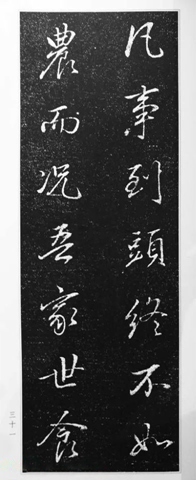 凡事到頭終不如
農而況吾家世食
三十一